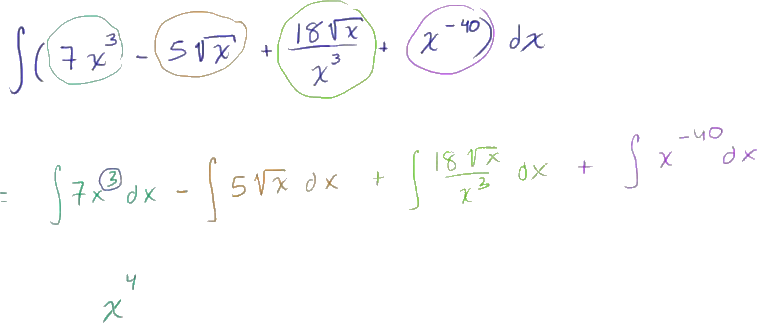 ∫(7x³ - 5√x + 18√x/x³ + x⁻⁴⁰) dx
= ∫7x³dx - ∫5√x dx + ∫18√x/x³ dx + ∫x⁻⁴⁰dx
x⁴